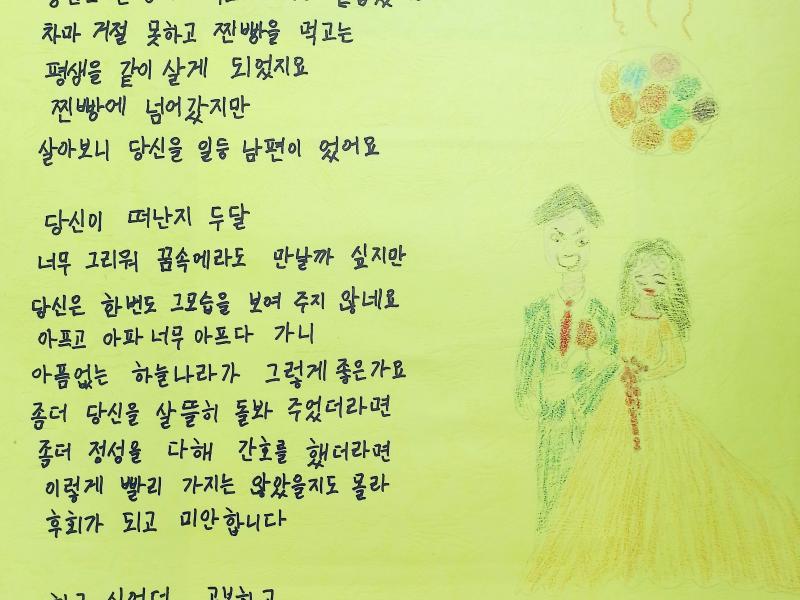 차마 거절 못하고 찐빵을 먹고는
평생을 같이 살게 되었지요
찐빵에 넘어갔지만
살아보니 당신을 일등 남편이 었어요
당신이 떠난지 두달
너무 그리워 꿈속에라도 만날까 싶지만
당신은 한번도 그모습을 보여 주지 않네요
아프고 아파 너무 아프다 가니
아픔없는 하늘나라가 그렇게 좋은가요
좀더 당신을 살뜰히 돌봐 주었더라면
좀더 정성을 다해 간호를 했더라면
이렇게 빨리 가지는 않았을지도 몰라
후회가 되고 미안합니다